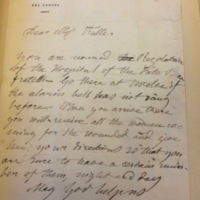 Dear Miss Fuller,
You are named Regolatrice
of the Hospital of the Fate Bene
fratelli. Go there at twelve if
the alarm bell has not rung
before. When you arrive there
you will receive all the women co
ming for the wounded and give
them your directions so that you
are sure to have a certain num
ber of them night and day
May God help us